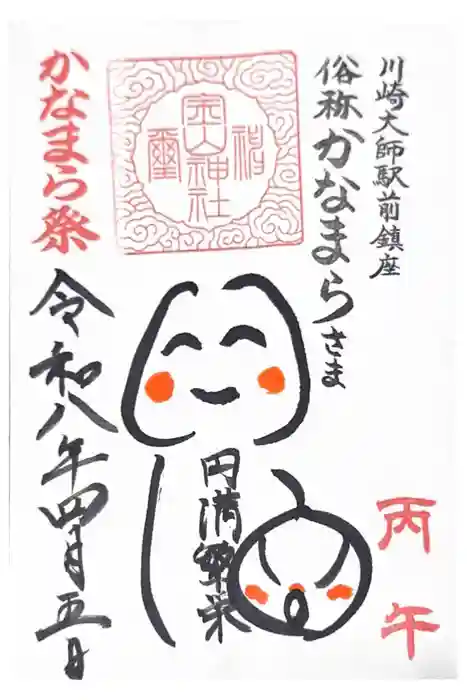 川崎大師駅前鎮座
俗称かなまらさま
金山神社
かなまら祭
令和八年四月五日
円満繁栄
丙午